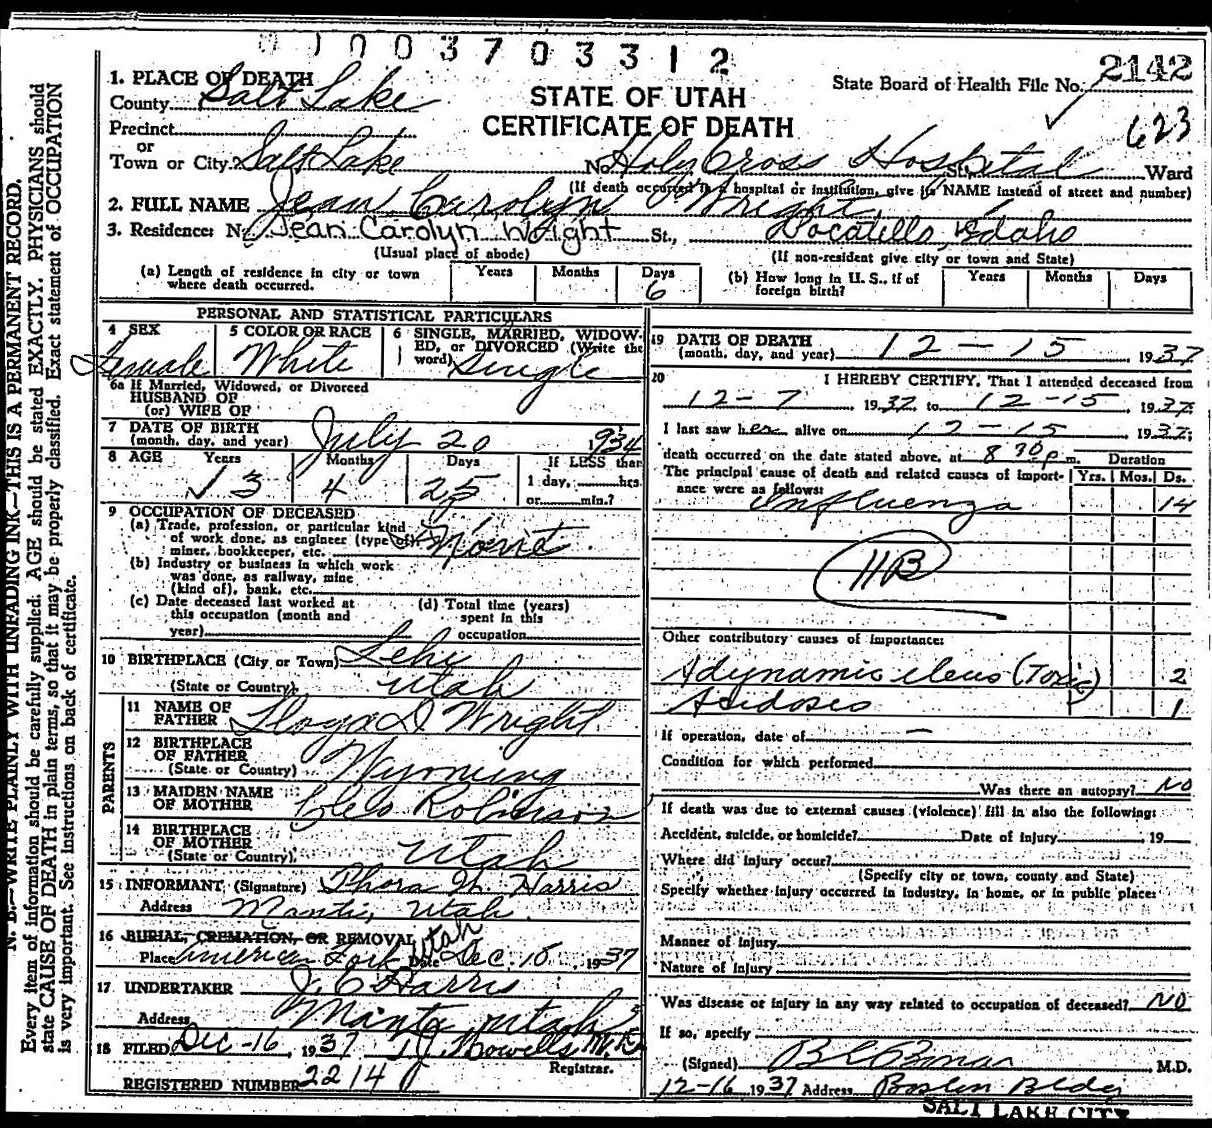 0 1 0 0 3 7 0 3 3 1 2
State Board of Health File No. 2142
623
STATE OF UTAH
CERTIFICATE OF DEATH
1. PLACE OF DEATH
County Salt Lake
Precinct
or
Town or City Salt Lake No. Holy Cross Hospital St., Ward
(If death occurred in a hospital or institution, give its NAME instead of street and number)
2. FULL NAME Jean Carolyn Wright
3. Residence: No. Jean Carolyn Wright St., Pocatello, Idaho
(Usual place of abode) (If non-resident give city or town and State)
(a) Length of residence in city or town where death occurred. Years Months Days 6
(b) How long in U. S., if of foreign birth? Years Months Days
PERSONAL AND STATISTICAL PARTICULARS
4 SEX Female
5 COLOR OR RACE White
6 SINGLE, MARRIED, WIDOWED, or DIVORCED (Write the word) Single
6a If Married, Widowed, or Divorced
HUSBAND OF
(or) WIFE OF
7 DATE OF BIRTH
(month, day, and year) July 20 1934
8 AGE Years 3 Months 4 Days 25 If LESS than
1 day, hrs.
or min.?
9 OCCUPATION OF DECEASED
(a) Trade, profession, or particular kind
of work done, as engineer (type of),
miner, bookkeeper, etc.
(b) Industry or business in which work
was done, as railway, mine
(kind of), bank, etc.
(c) Date deceased last worked at
this occupation (month and
year)
(d) Total time (years)
spent in this
occupation
10 BIRTHPLACE (City or Town) Lehi
(State or Country) Utah
PARENTS
11 NAME OF
FATHER Lloyd D Wright
12 BIRTHPLACE
OF FATHER
(State or Country) Wyoming
13 MAIDEN NAME
OF MOTHER Cleo Robinson
14 BIRTHPLACE
OF MOTHER
(State or Country) Utah
15 INFORMANT (Signature) Phora M. Harris
Address Manti, Utah
16 BURIAL, CREMATION, OR REMOVAL
Place American Fork Utah Date Dec. 1937
17 UNDERTAKER J. C. Harris
Address Manti Utah
18 FILED Dec-16, 1937 T J Howells M.D.
Registrar.
REGISTERED NUMBER 2214
19 DATE OF DEATH
(month, day, and year) 12-15 1937
20 I HEREBY CERTIFY, That I attended deceased from
12-7 1937, to 12-15, 1937.
I last saw her alive on 12-15 1937;
death occurred on the date stated above, at 8 30 p m.
The principal cause of death and related causes of importance were as follows: Duration
Yrs. Mos. Ds.
Influenza 14
11B
Other contributory causes of importance:
Adynamic ileus (Toxic) 2
Acidosis 1
If operation, date of —
Condition for which performed
Was there an autopsy? No
If death was due to external causes (violence) fill in also the following:
Accident, suicide, or homicide? Date of injury 19
Where did injury occur?
(Specify city or town, county and State)
Specify whether injury occurred in industry, in home, or in public place:
Manner of injury
Nature of injury
Was disease or injury in any way related to occupation of deceased? No
If so, specify
(Signed) M.D.
12-16 1937 Address Boston Bldg
SALT LAKE CITY
N. B.—WRITE PLAINLY WITH UNFADING INK—THIS IS A PERMANENT RECORD.
Every item of information should be carefully supplied. AGE should be stated EXACTLY. PHYSICIANS should
state CAUSE OF DEATH in plain terms, so that it may be properly classified. Exact statement of OCCUPATION
is very important. See instructions on back of certificate.